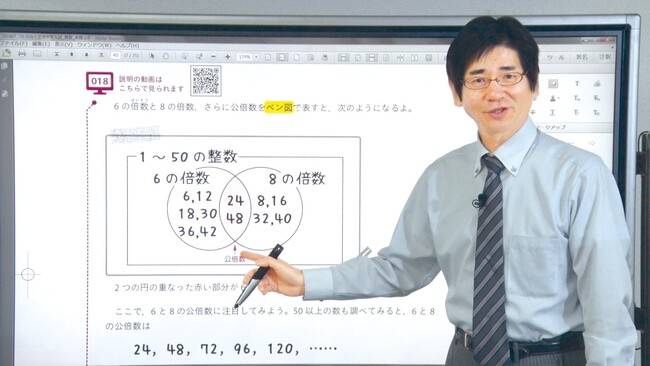 ファイル(F) 編集(E) 表示(V) ウィンドウ(W) ヘルプ(H)
018
説明の動画は
こちらで見られます
6の倍数と8の倍数，さらに公倍数をベン図で表すと，次のようになるよ。
1～50の整数
6の倍数
8の倍数
6,12
24
8,16
18,30
48
32,40
36,42
公倍数
2つの円の重なった赤い部分が
ここで，6と8の公倍数に注目してみよう。50以上の数も調べてみると，6と8
の公倍数は
24, 48, 72, 96, 120, ……